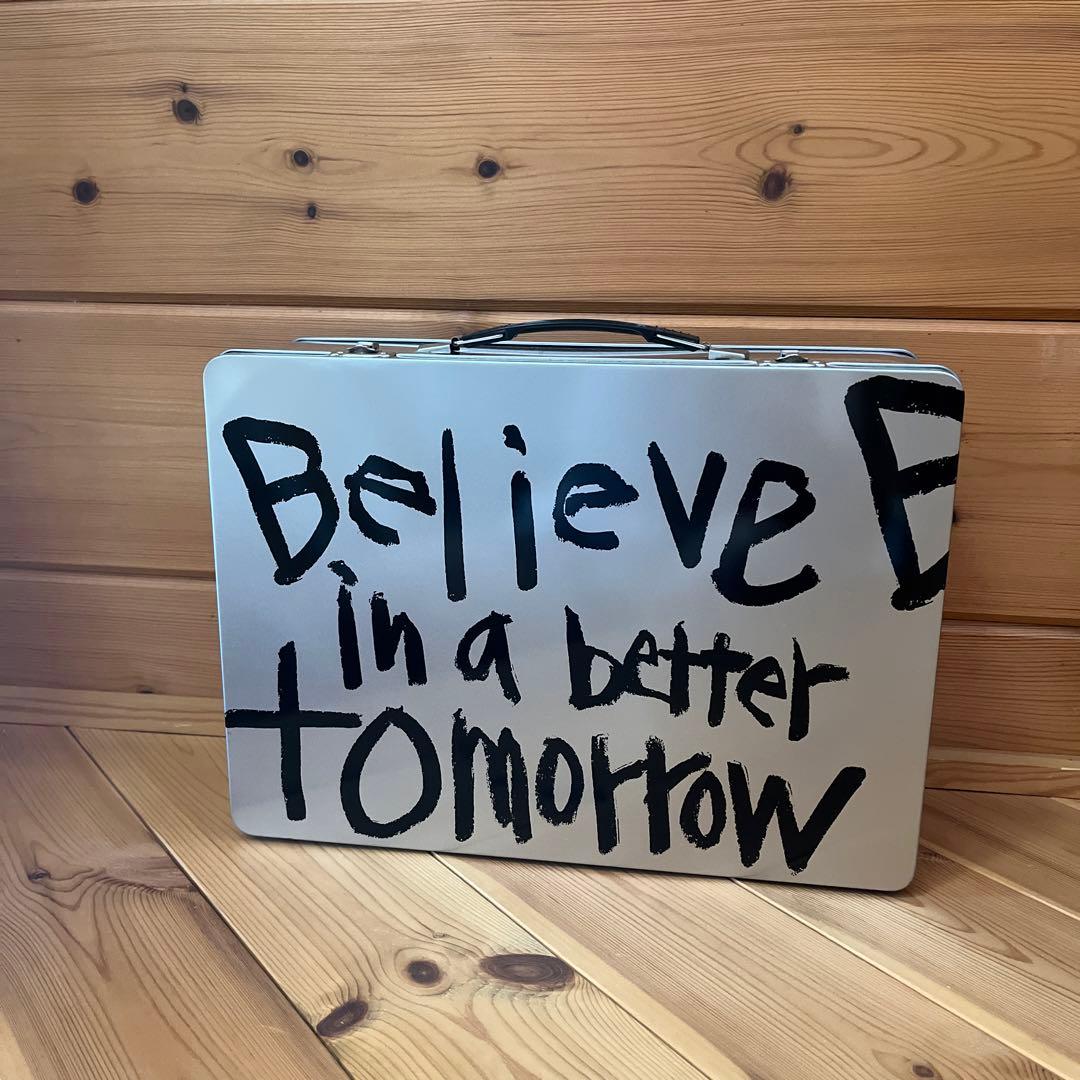 Believe B
in a better
tomorrow